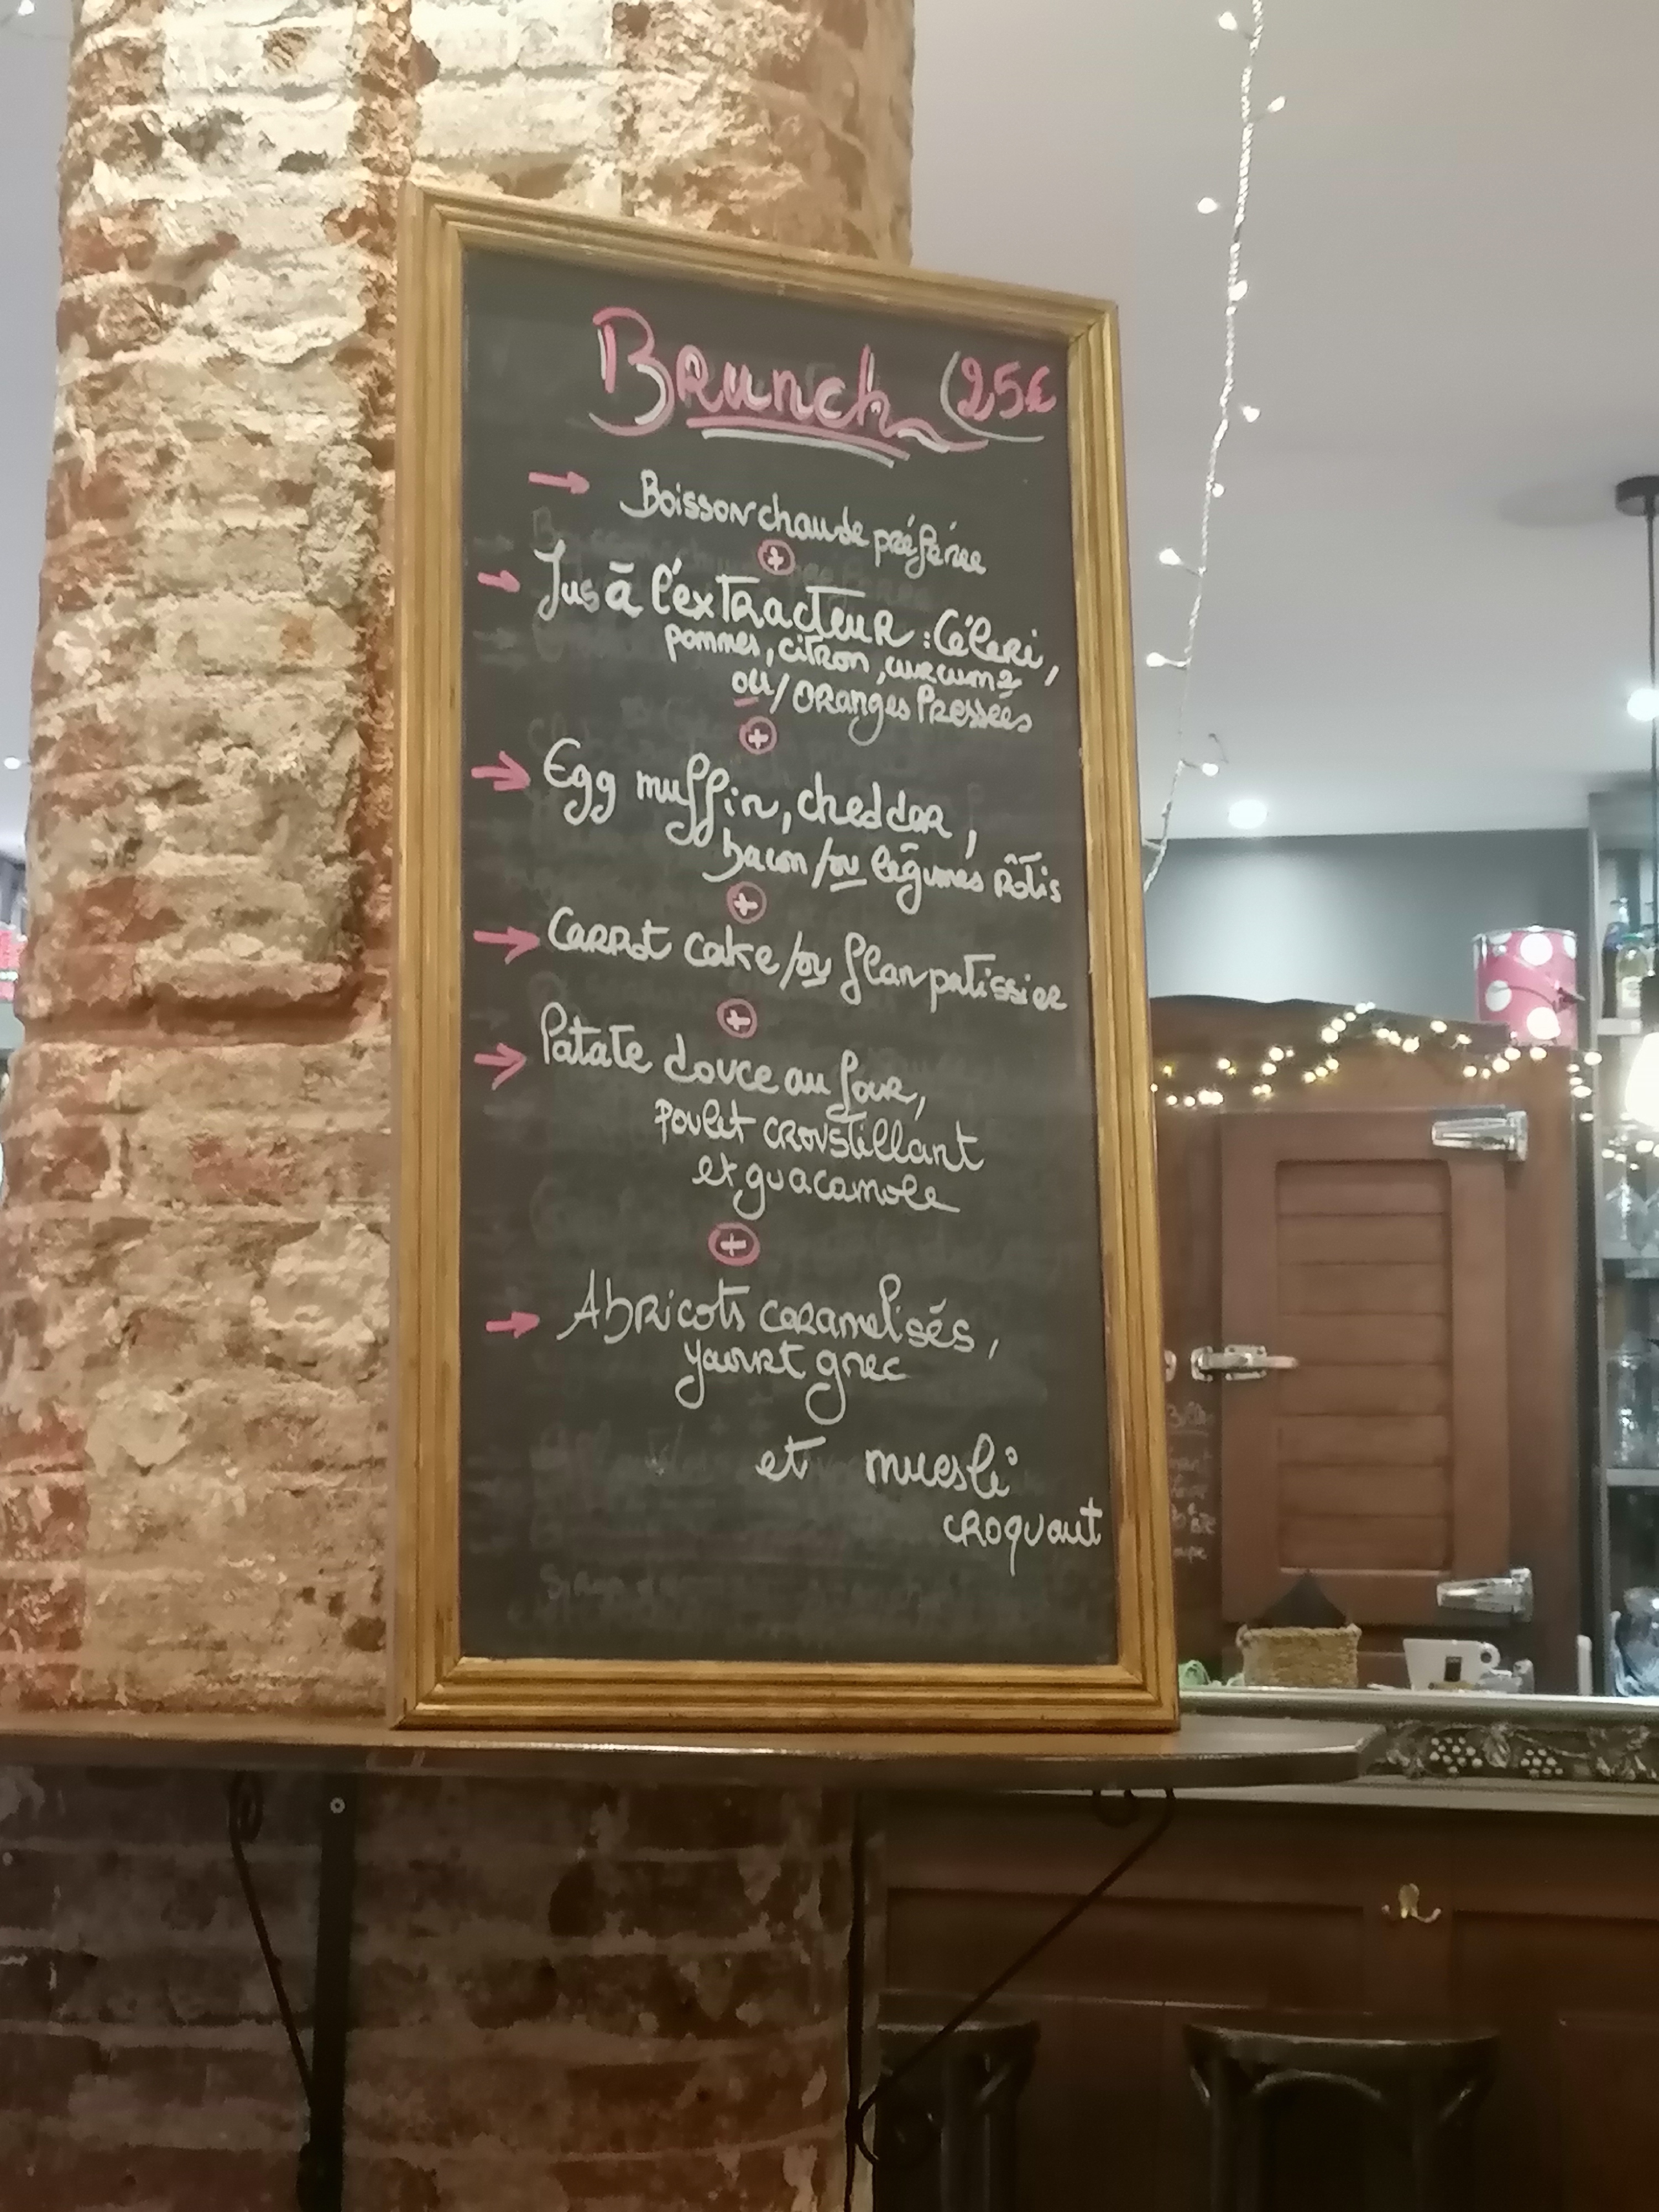 Brunch (25€
Boisson chaude préférée
+
Jus à l'extracteur : Céleri,
pommes, citron, curcuma
ou / oranges Pressées
+
Egg muffin, cheddar,
bacon / ou légumes rôtis
+
Carrot cake / ou flan patissier
+
Patate douce au four,
poulet croustillant
et guacamole
+
Abricots caramelisés,
yaourt grec
et muesli
croquant